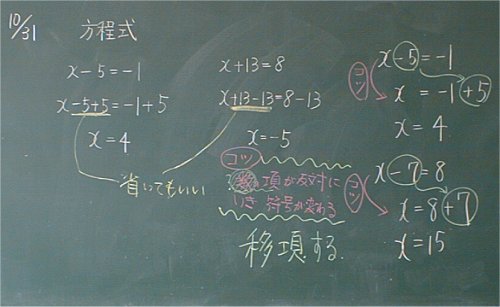 10/31
方程式
x-5=-1
x-5+5=-1+5
x=4
x+13=8
x+13-13=8-13
x=-5
省いてもいい
コツ
数の項が反対に
いき 符号が変わる
移項する
x-5=-1
コツ
x=-1+5
x=4
x-7=8
コツ
x=8+7
x=15